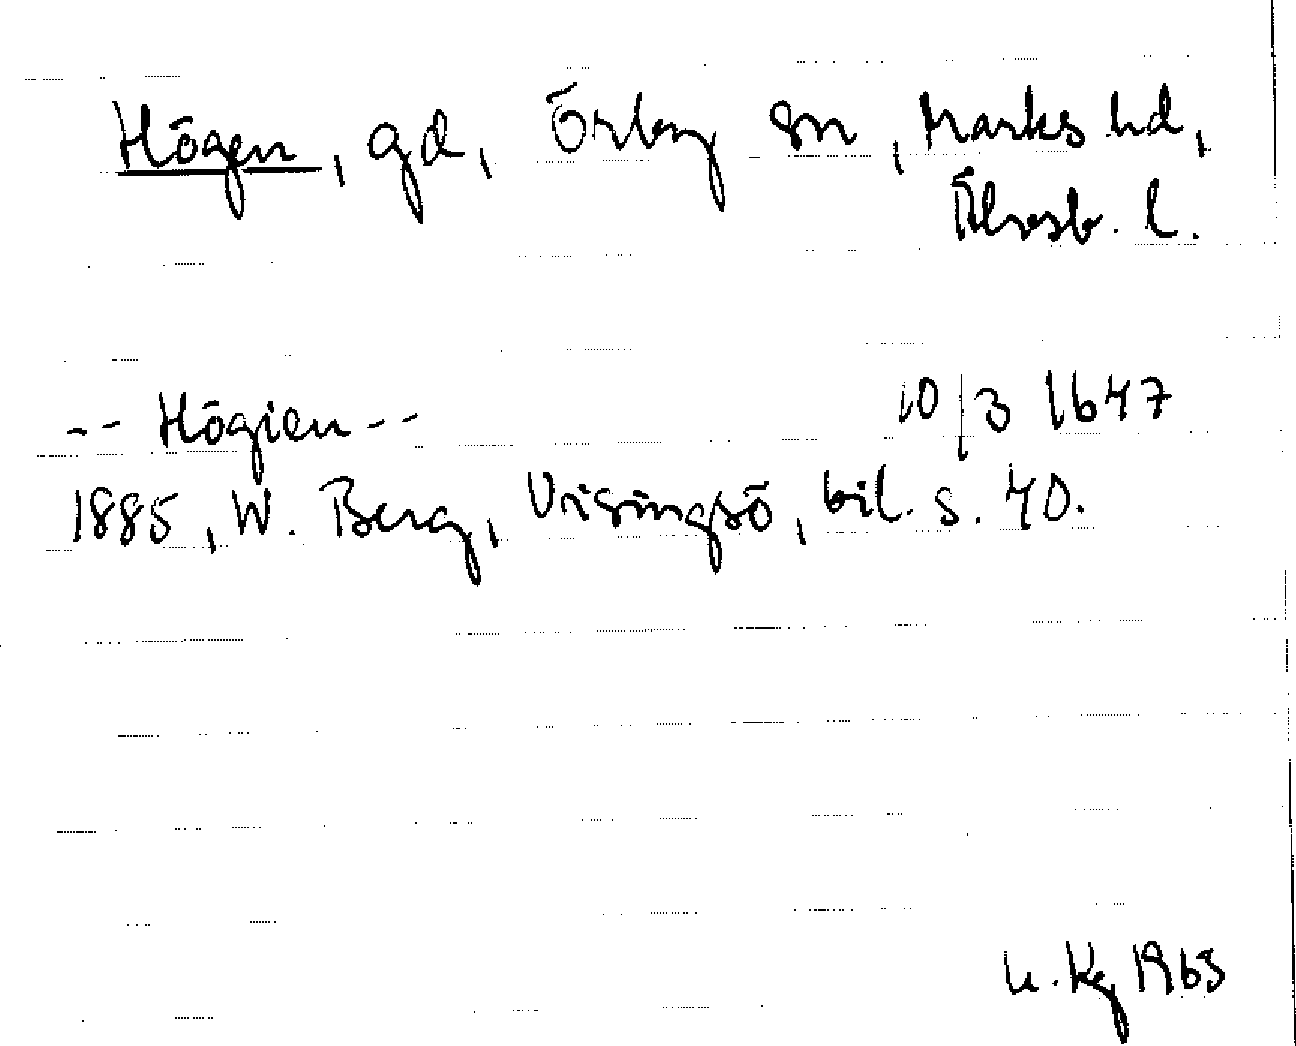 Högen, gd, Örby sn, Marks hd,
Älvsb. l.
-- Högien -- 10/3 1647
1885, W. Berg, Visingsö, bil. s. 40.
1965